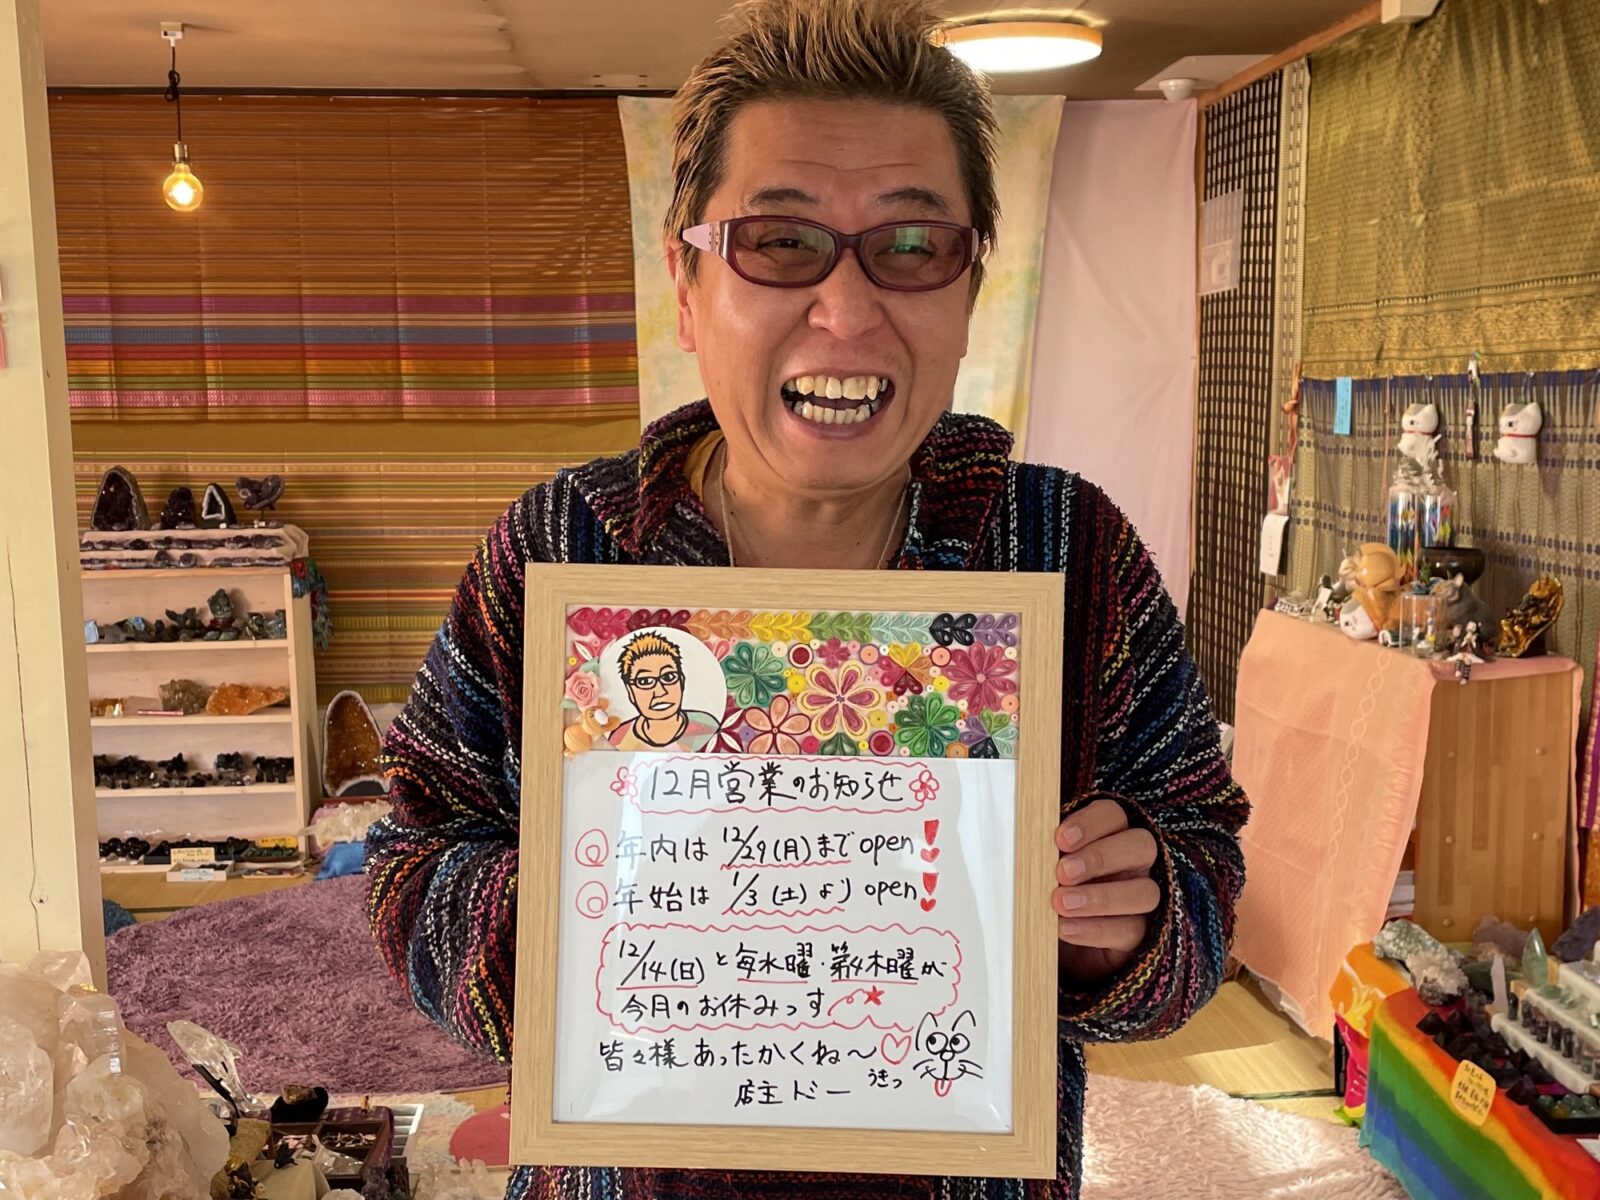 12月営業のお知らせ
◎ 年内は 12/29(月)まで open!
◎ 年始は 1/3(土)より open!
12/14(日)と毎水曜・第4木曜が
今月のお休みっす
皆々様あったかくね〜♡
うきっ
店主ドミー